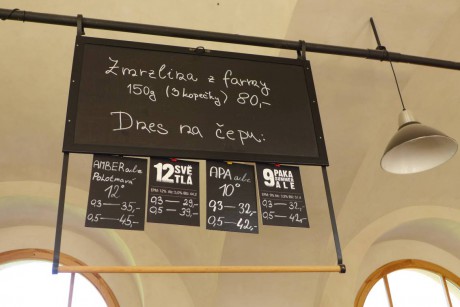 Zmrzlina z farmy
150g (3 kopečky) 80,-
Dnes na čepu:
AMBER ale
Polotmavá
12°
0,3 — 35,-
0,5 — 45,-
12 SVĚ
TLÁ
0,3 — 29,-
0,5 — 39,-
APA ale
10°
0,3 — 32,-
0,5 — 42,-
9 PAKA
SUMMER
ALE
0,3 — 32,-
0,5 — 42,-